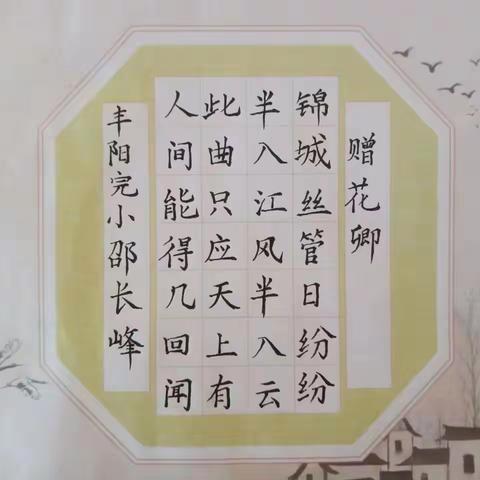 赠花卿
锦城丝管日纷纷
半入江风半入云
此曲只应天上有
人间能得几回闻
丰阳完小邵长峰